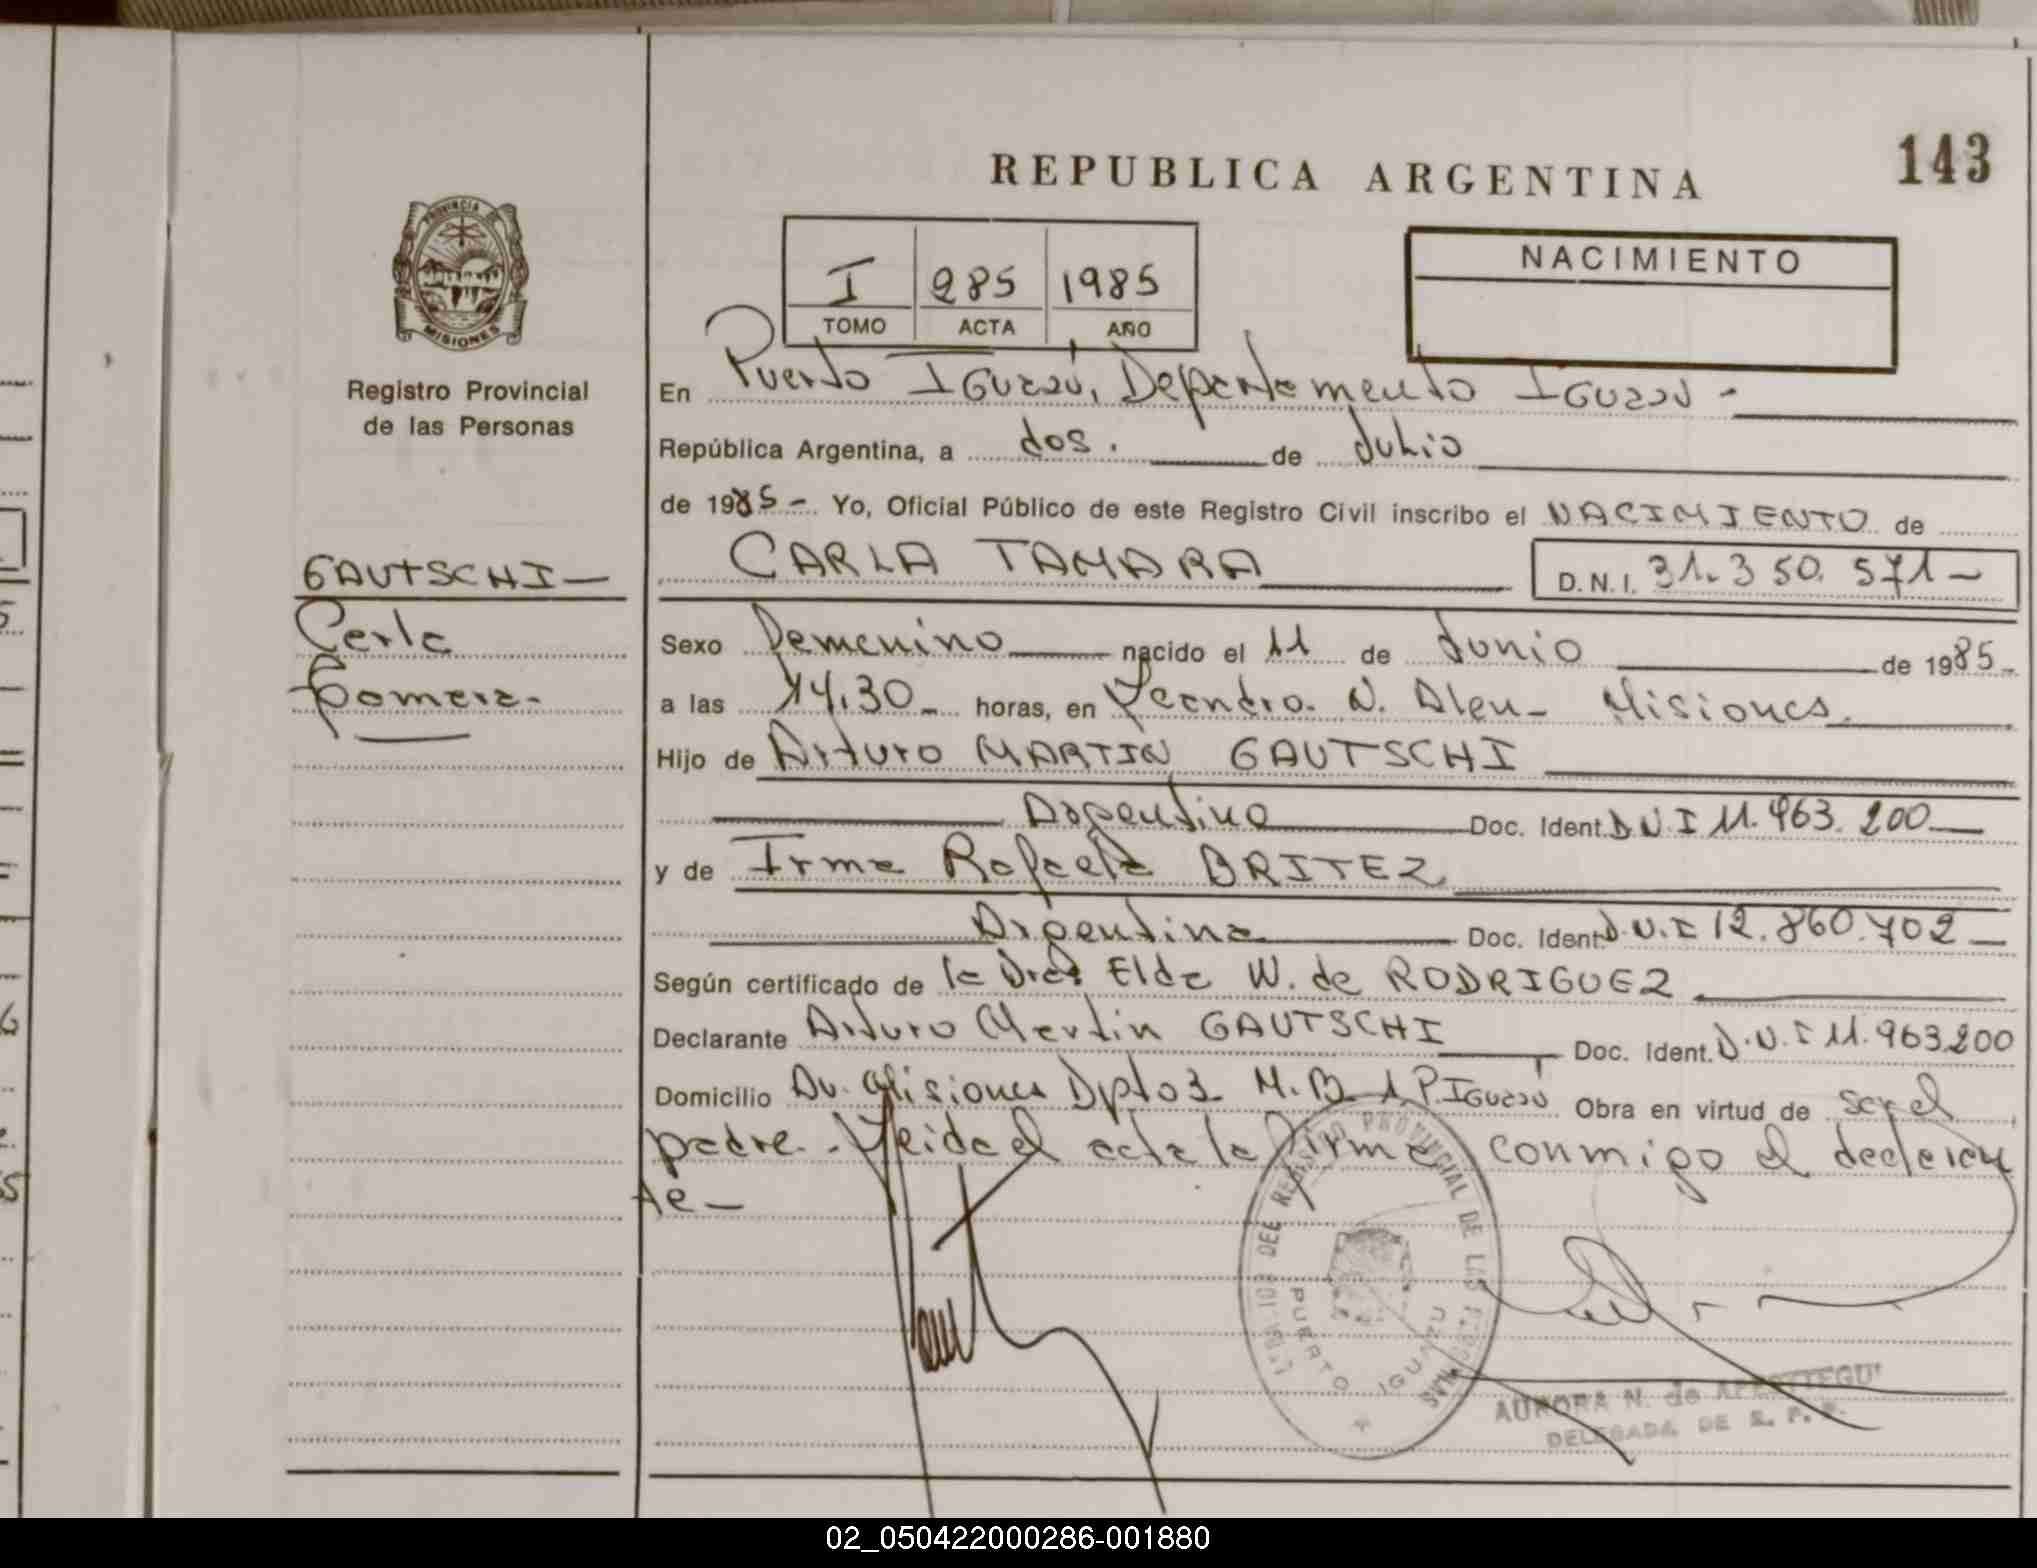 143
REPUBLICA ARGENTINA
PROVINCIA DE
MISIONES
Registro Provincial
de las Personas
I 285 1985
TOMO ACTA AÑO
NACIMIENTO
En Puerto Iguazú, Departamento Iguazú -
República Argentina, a dos. de Julio
de 1985 - Yo, Oficial Público de este Registro Civil inscribo el NACIMIENTO de
CARLA TAMARA D.N.I. 31.350.571 -
GAUTSCHI -
Carla
Tamara -
Sexo Femenino nacido el 11 de Junio de 1985 -
a las 14.30 - horas, en Leandro. N. Alem - Misiones.
Hijo de Arturo MARTIN GAUTSCHI
Argentino Doc. Ident. D.N.I 11.963.200
y de Irma Rafaela BRITEZ
Argentina Doc. Ident. D.N.I 12.860.702
Según certificado de la Dra. Elda W. de RODRIGUEZ
Declarante Arturo Martin GAUTSCHI Doc. Ident. D.N.I 11.963.200
Domicilio Av. Misiones Dpto 3 M.B 1 P. Iguazú Obra en virtud de ser el
padre. - Leida el acta la firma conmigo el declaran
te -
REGISTRO PROVINCIAL DE LAS PERSONAS
PUERTO IGUAZU
AURORA N. de
DELEGADA DE
02_050422000286-001880